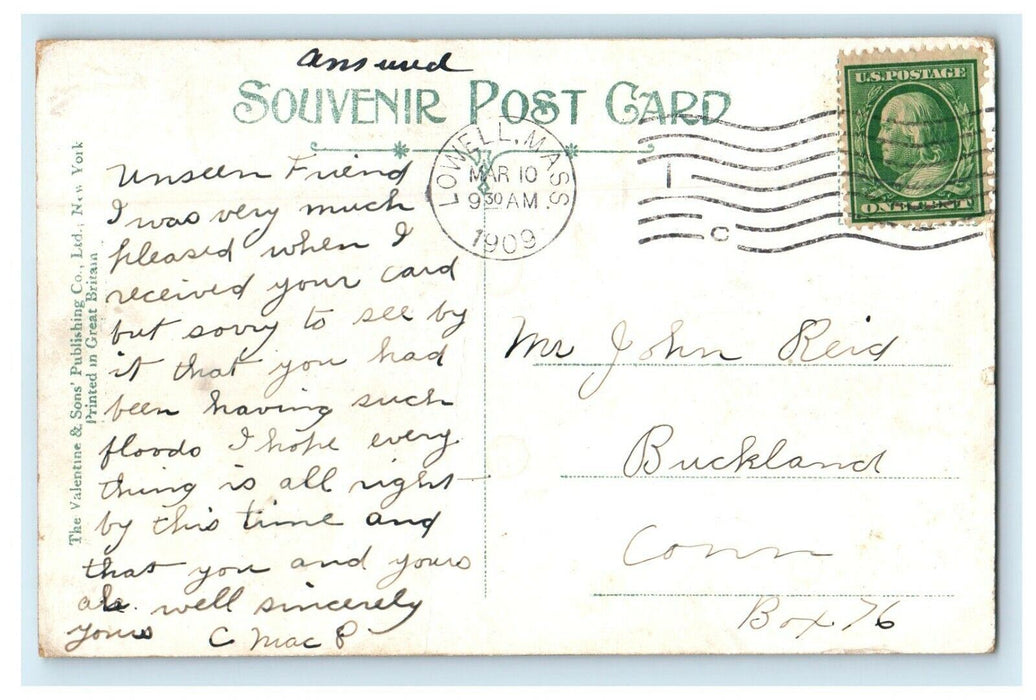 SOUVENIR POST CARD
U.S. POSTAGE
ONE CENT
LOWELL, MASS
MAR 10
9 30 AM
1909
The Valentine & Sons' Publishing Co., Ltd., New York
Printed in Great Britain
Unseen Friend
I was very much
pleased when I
received your card
but sorry to see by
it that you had
been having such
floods I hope every
thing is all right
by this time and
that you and yours
are well sincerely
yours C Mac P
Mr John Reid
Buckland
Conn
Box 76